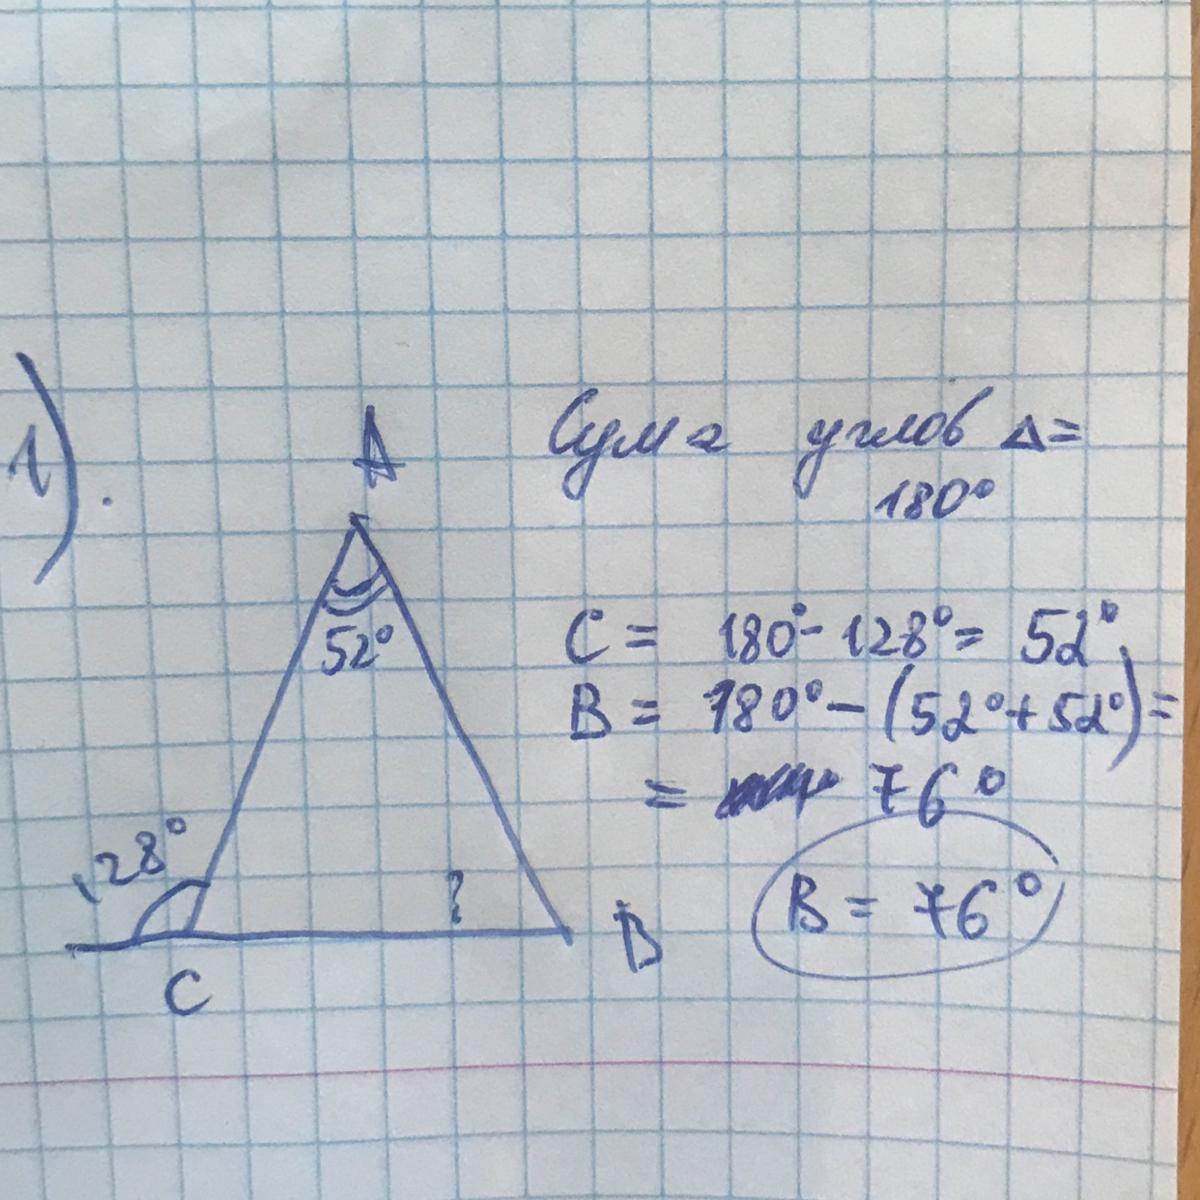 1).
A
Сума углов Δ=
180°
52°
C = 180°-128°= 52°
B = 180°-(52°+52°)=
= 76°
128°
?
B
B = 76°
C